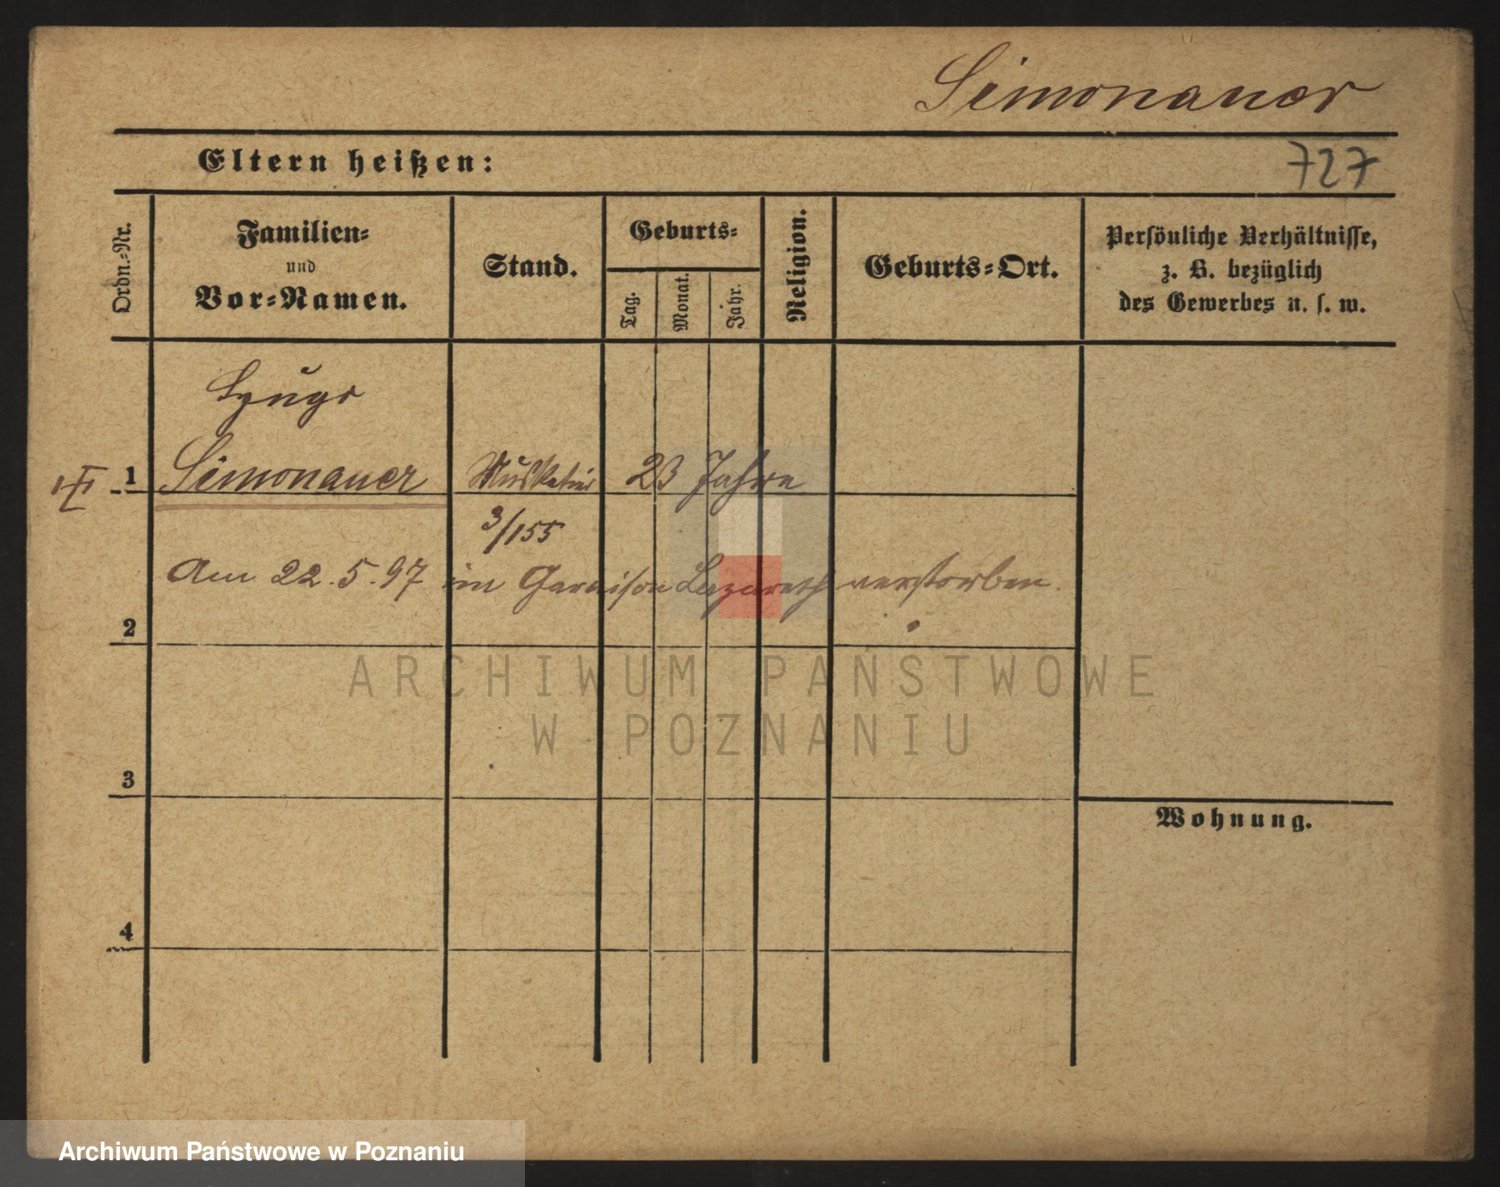 Simonauer
Eltern heißen:
727
Ordn.-Nr.
Familien-
und
Vor-Namen.
Stand.
Geburts-
Tag.
Monat.
Jahr.
Religion.
Geburts-Ort.
Persönliche Verhältnisse,
z. B. bezüglich
des Gewerbes u. s. w.
Hugo
1 Simonauer Musketier 23 Jahre
3/155
Am 22.5.97 im Garnison Lazareth verstorben.
2
ARCHIWUM PAŃSTWOWE
W POZNANIU
3
Wohnung.
4
Archiwum Państwowe w Poznaniu